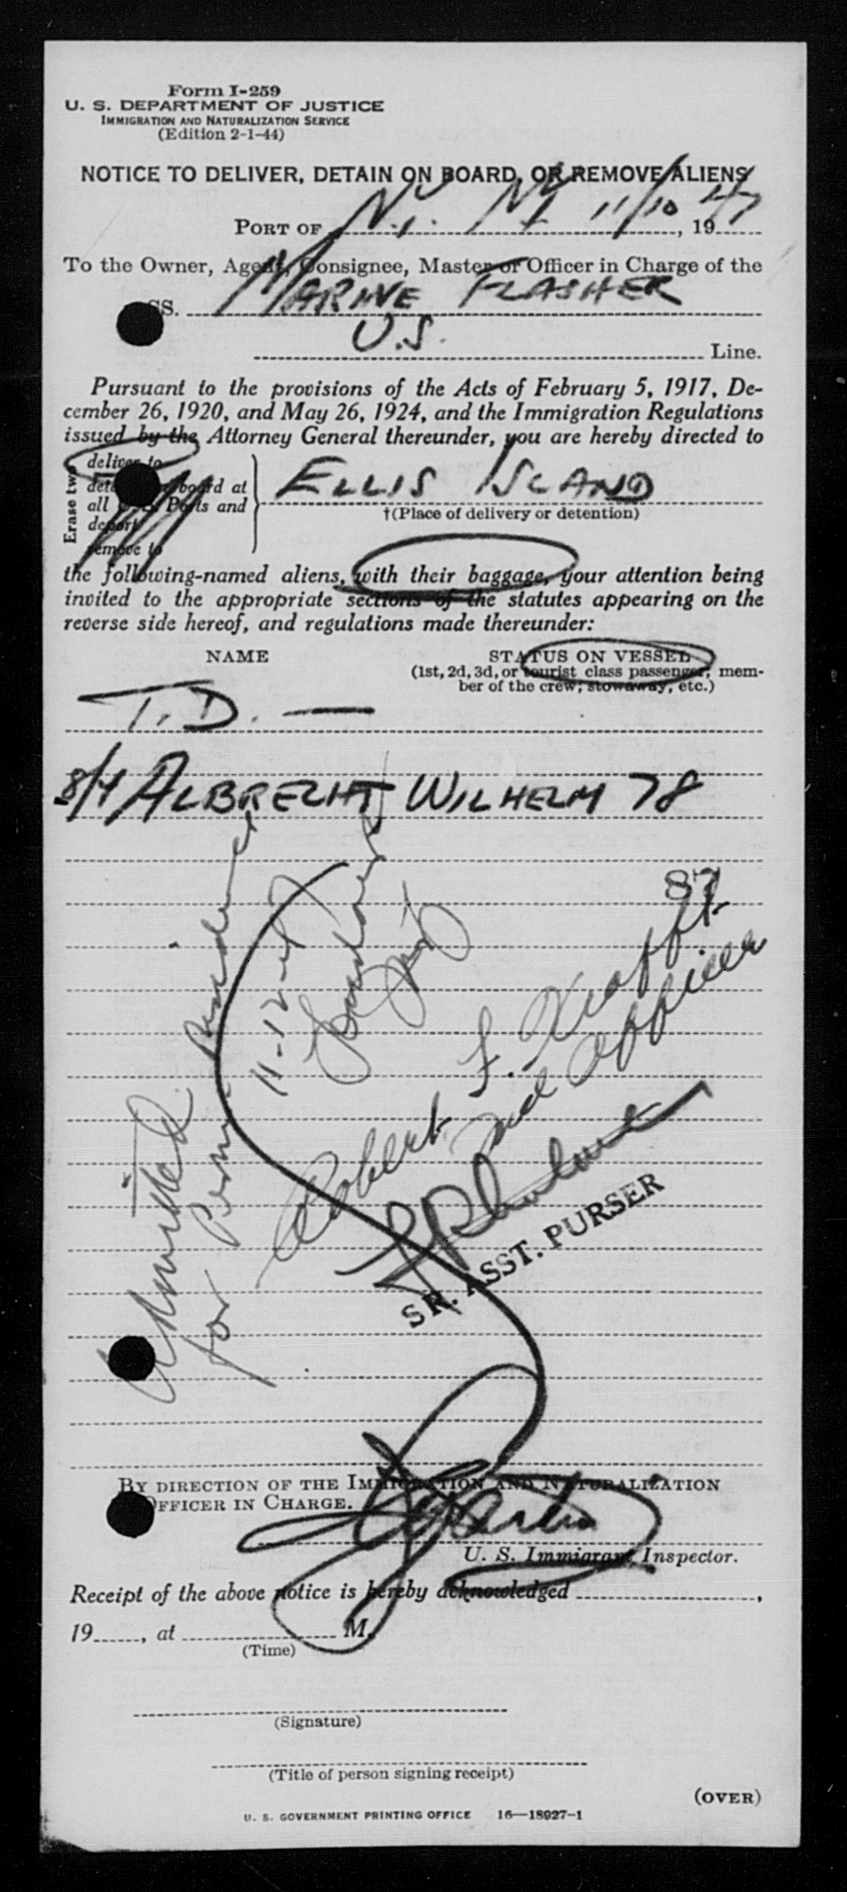 Form I-259
U. S. DEPARTMENT OF JUSTICE
IMMIGRATION AND NATURALIZATION SERVICE
(Edition 2-1-44)
NOTICE TO DELIVER, DETAIN ON BOARD, OR REMOVE ALIENS
PORT OF N.Y. NY 11/10, 1947
To the Owner, Agent, Consignee, Master or Officer in Charge of the
SS. MARINE FLASHER
U.S. Line.
Pursuant to the provisions of the Acts of February 5, 1917, De-
cember 26, 1920, and May 26, 1924, and the Immigration Regulations
issued by the Attorney General thereunder, you are hereby directed to
Erase two
deliver to
board at
all Ports and
deport
remove to
ELLIS ISLAND
†(Place of delivery or detention)
the following-named aliens, with their baggage, your attention being
invited to the appropriate sections of the statutes appearing on the
reverse side hereof, and regulations made thereunder:
NAME
STATUS ON VESSEL
(1st, 2d, 3d, or tourist class passenger, mem-
ber of the crew, stowaway, etc.)
T.D. —
8/4 ALBRECHT WILHELM 78
87
Admitted
for Perm. residence
11-12-47
Robert F. Krafft
Officer
SR. ASST. PURSER
BY DIRECTION OF THE IMMIGRATION AND NATURALIZATION
OFFICER IN CHARGE.
U. S. Immigrant Inspector.
Receipt of the above notice is hereby acknowledged ,
19 , at M.
(Time)
(Signature)
(Title of person signing receipt)
(OVER)
U. S. GOVERNMENT PRINTING OFFICE 16—18927-1